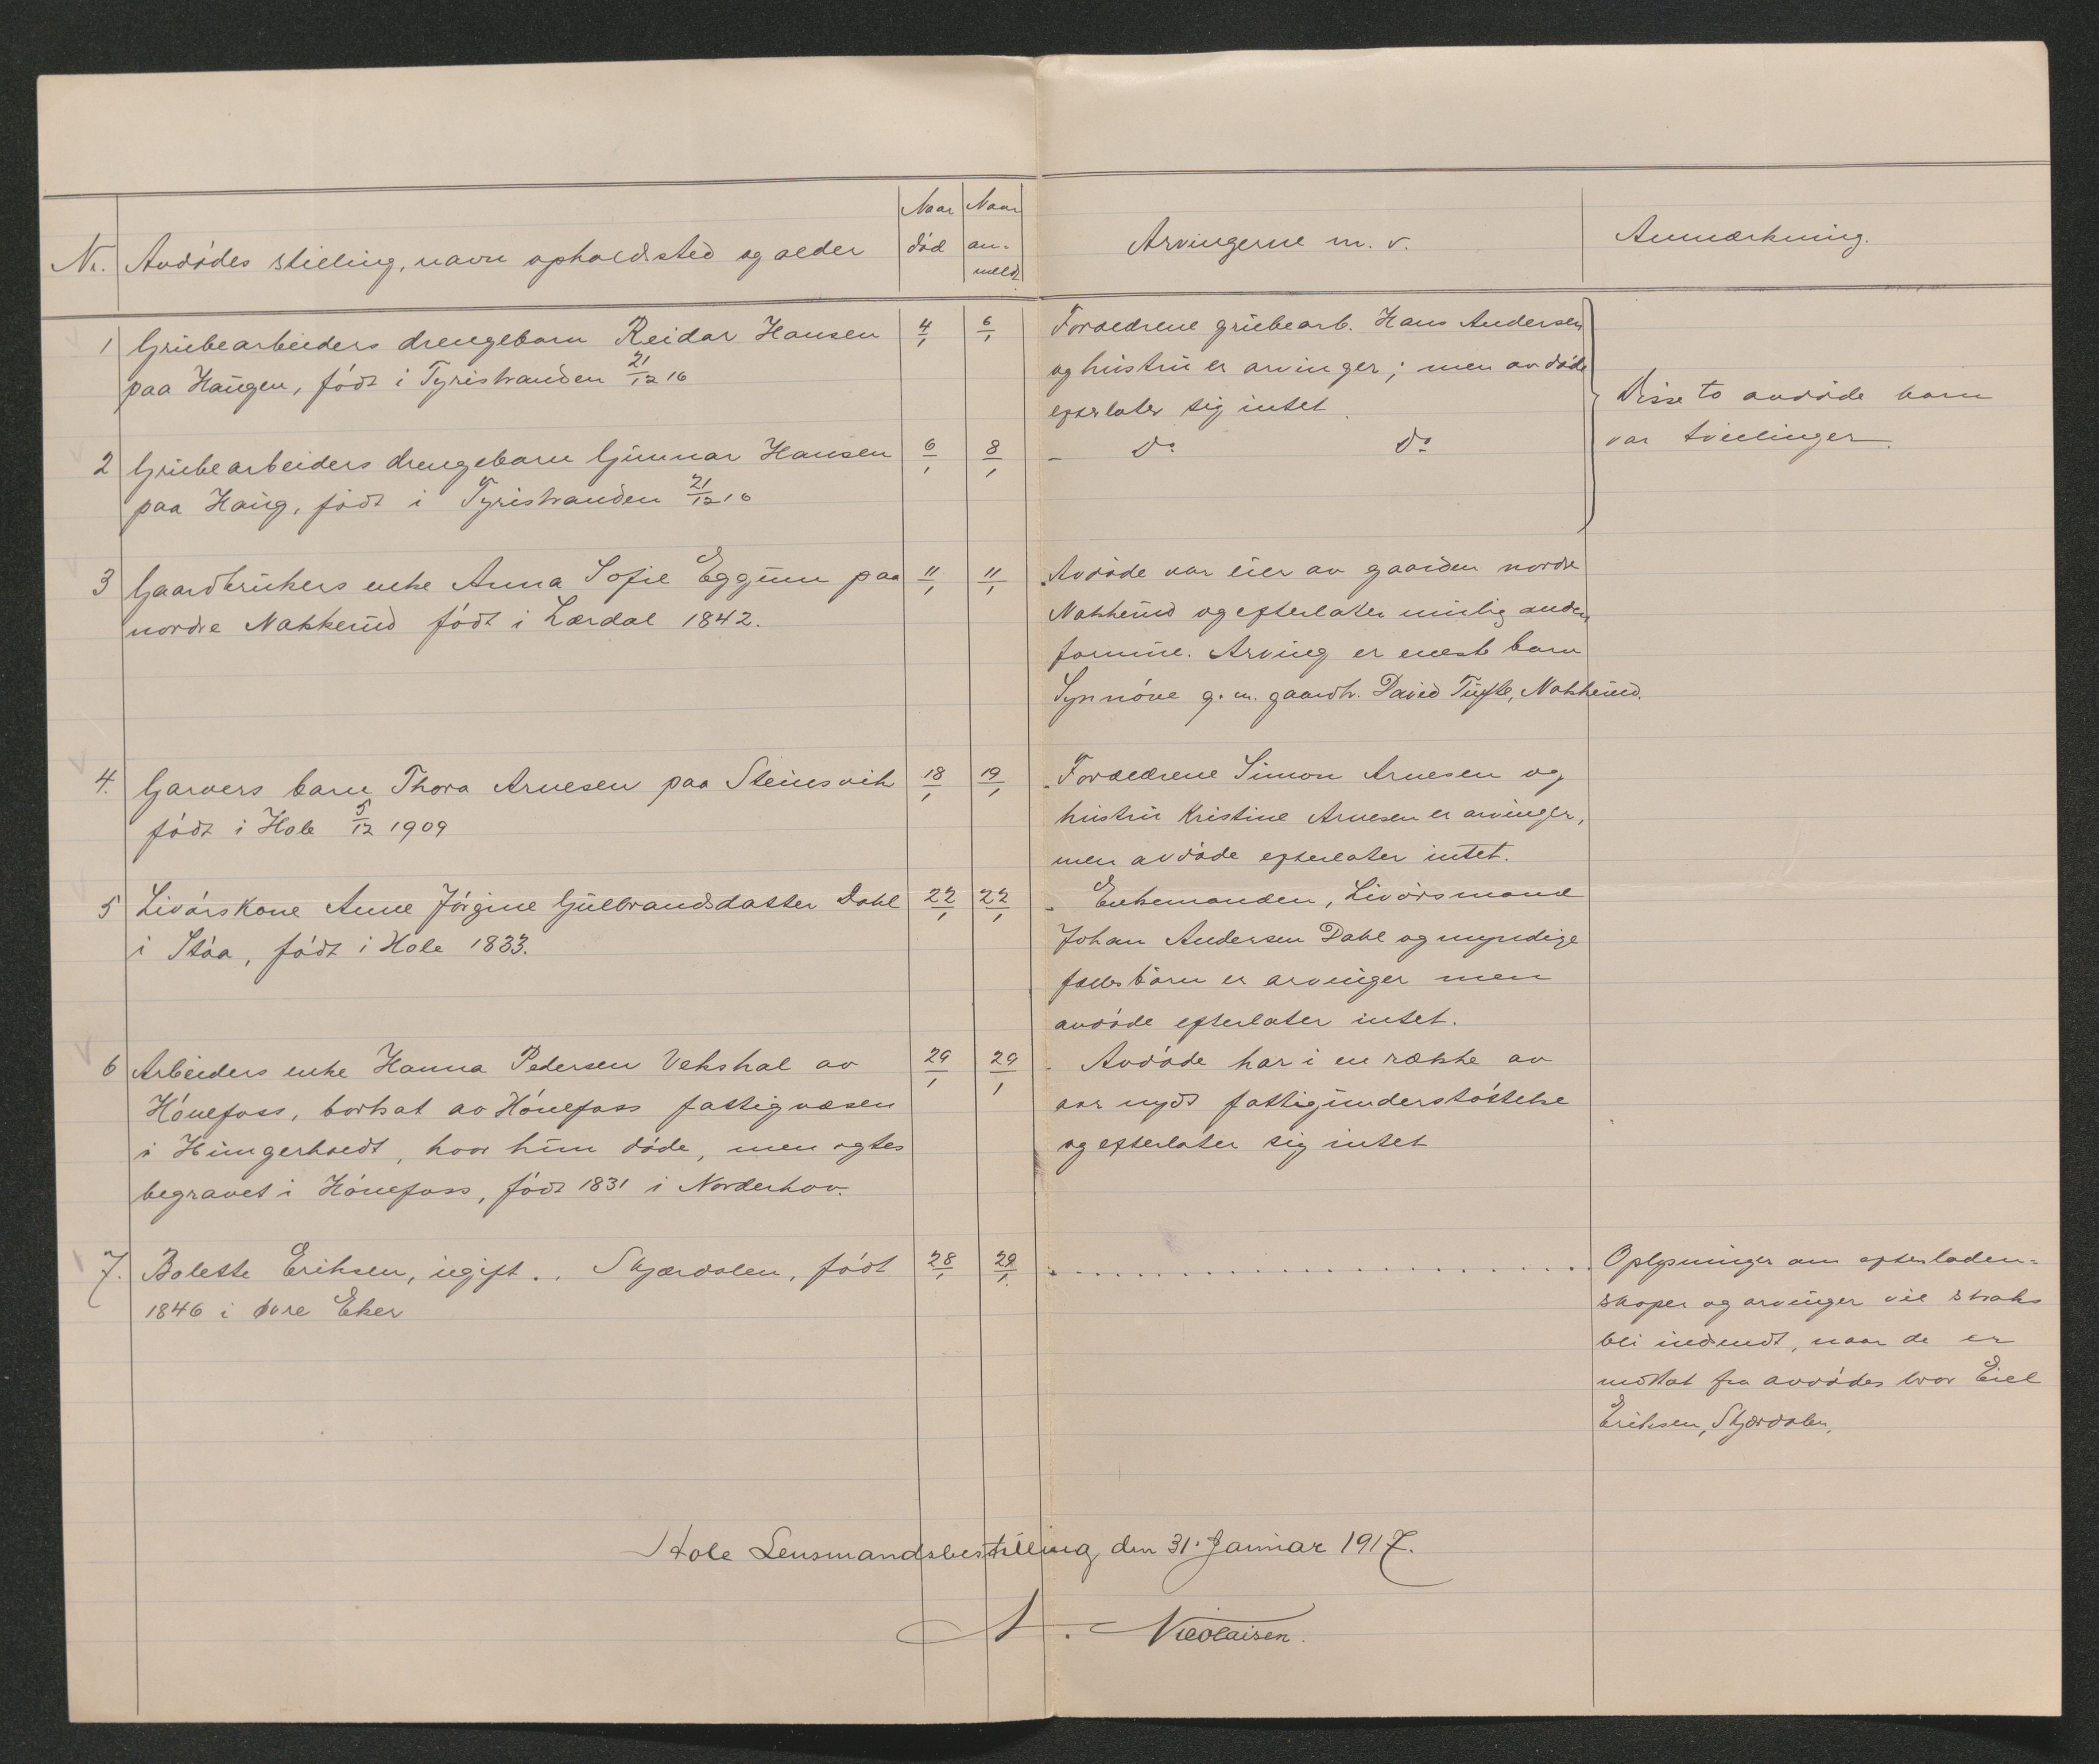 Nr. Avdødes stilling, navn opholdssted og alder
Naar død
Naar an-meldt
Arvingerne m. v.
Anmærkning.
1 Grubearbeiders drengebarn Reidar Hansen 4/1 6/1
paa Haugen, født i Tyristranden 21/12 16
Forældrene grubearb. Hans Andersen
og hustru er arvinger; men avdøde
efterlater sig intet.
Disse to avdøde barn
var tvillinger.
2 Grubearbeiders drengebarn Gunnar Hansen 6/1 8/1
paa Haug, født i Tyristranden 21/12 16
- Do Do
3 Gaardbrukers enke Anna Sofie Eggum paa 11/1 11/1
nordre Nakkerud født i Lærdal 1842.
Avdøde var eier av gaarden nordre
Nakkerud og efterlater mulig anden
formue. Arving er eneste barn
Synnøve g. m. gaardbr. David Tufte, Nakkerud.
4. Garvers barn Thora Arnesen paa Steinsvik 18/1 19/1
født i Hole 5/12 1909
Forældrene Simon Arnesen og
hustru Kristine Arnesen er arvinger,
men avdøde efterlater intet.
5 Livørskone Anne Jørgine Gulbrandsdatter Dahl 22/1 22/1
i Støa, født i Hole 1833.
Enkemanden, Livørsmand
Johan Andersen Dahl og myndige
fællesbørn er arvinger men
avdøde efterlater intet.
6 Arbeiders enke Hanna Pedersen Vekshal av 29/1 29/1
Hønefoss, bortsat av Hønefoss fattigvæsen
i Hungerholdt, hvor hun døde, men agtes
begravet i Hønefoss, født 1831 i Norderhov.
Avdøde har i en række av
aar nydt fattigunderstøttelse
og efterlater sig intet
7. Bolette Eriksen, ugift .. Skjærdalen, født 28/1 29/1
1846 i Øvre Eker
Oplysninger om efterladen-
skaper og arvinger vil straks
bli indsendt, naar de er
mottat fra avdødes bror Eiel
Eriksen, Skjærdalen.
Hole Lensmandsbestilling, den 31. Januar 1917.
A. Nicolaisen.